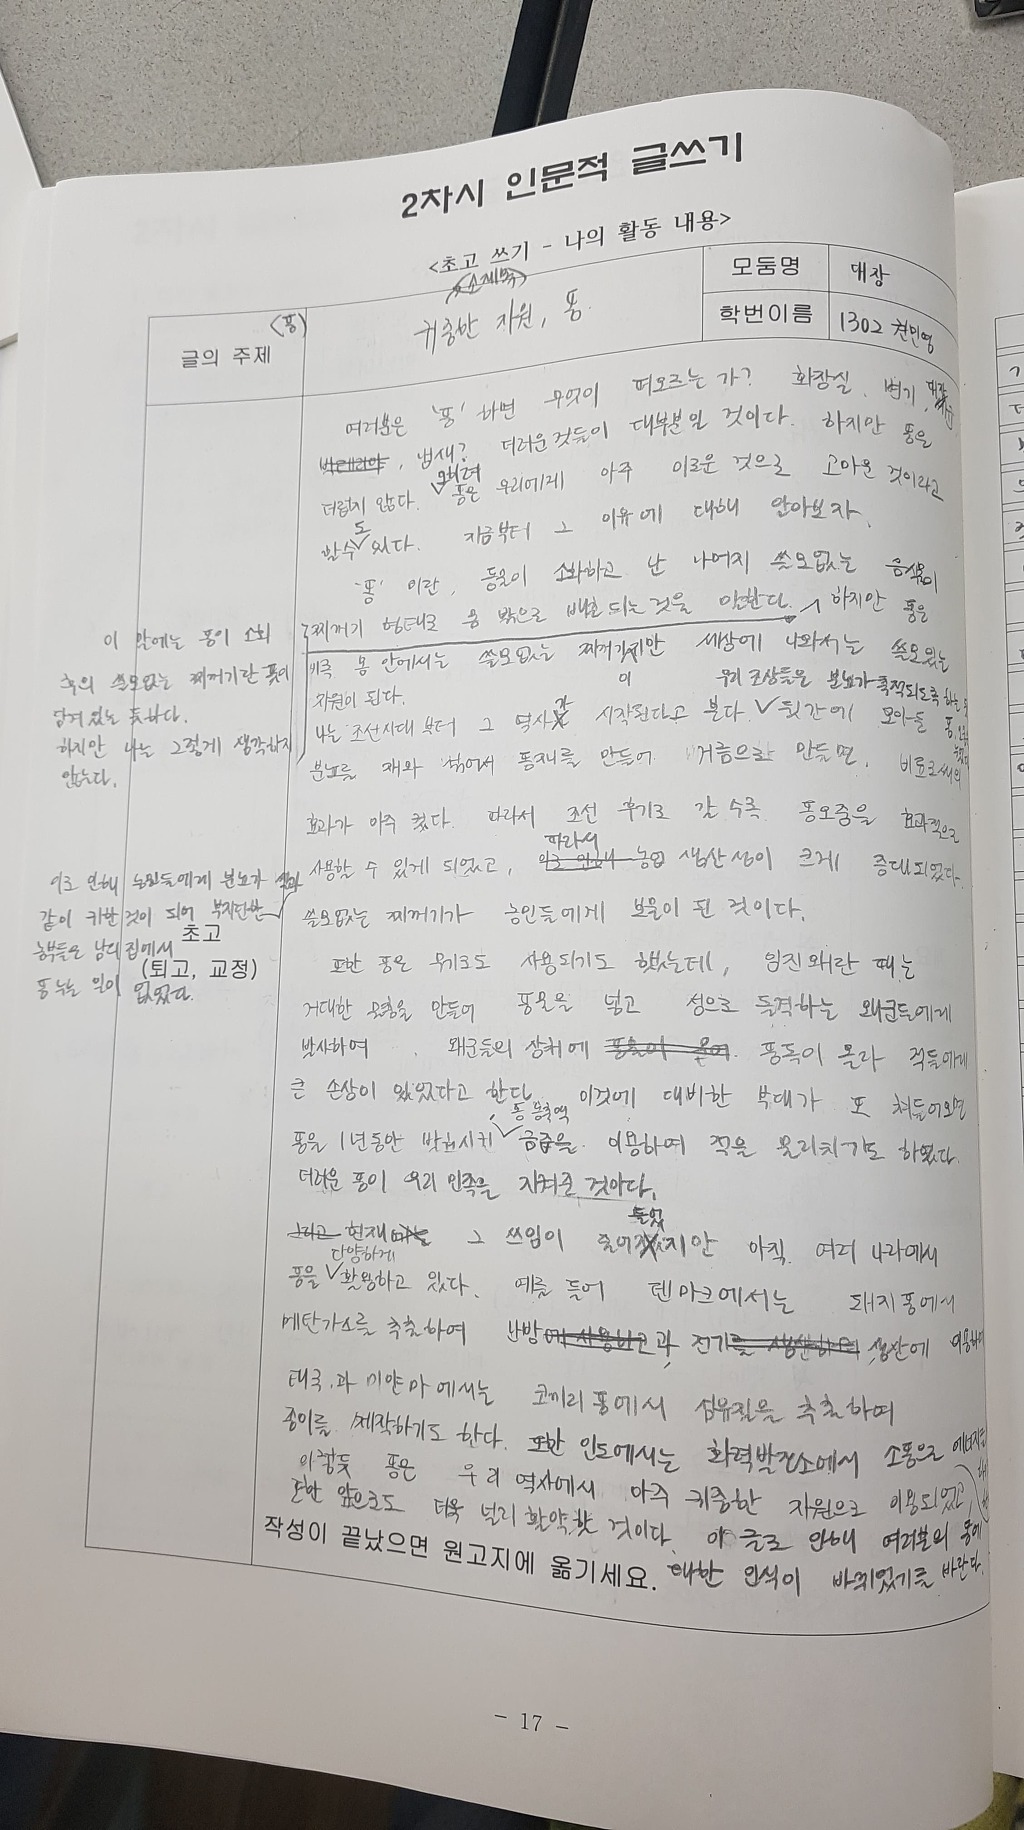 2차시 인문적 글쓰기
<초고 쓰기 - 나의 활동 내용>
(소제목)
글의 주제
(똥)
귀중한 자원, 똥
모둠명
대장
학번이름
1302
여러분은 '똥' 하면 무엇이 떠오르는가? 화장실, 변기,
, 냄새? 더러운것들이 대부분일 것이다. 하지만 똥은
더럽지 않다. 오히려 똥은 우리에게 아주 이로운 것으로 고마운 것이라고
할수도 있다. 지금부터 그 이유에 대해 알아보자.
'똥' 이란, 동물이 소화하고 난 나머지 쓸모없는 음식물이
찌꺼기 형태로 몸 밖으로 배출되는것을 말한다. 하지만 똥은
이 말에는 똥이 소화
후의 쓸모없는 찌꺼기란 뜻이
담겨있는 듯하다.
하지만 나는 그렇게 생각하지
않는다.
비록 몸 안에서는 쓸모없는 찌꺼기지만 세상에 나와서는 쓸모있는
자원이 된다.
나는 조선시대부터 그 역사가 시작된다고 본다. 우리 조상들은 분뇨가 축적되도록 하는
뒷간에 모아둔 똥,
분뇨를 재와 섞어서 똥재를 만들어 거름으로 만들면, 비료로써의
효과가 아주 컸다. 따라서 조선 후기로 갈수록 똥오줌을 효과적으로
사용할 수 있게 되었고, 따라서 농업 생산성이 크게 증대되었다.
이로 인해 농민들에게 분뇨가
같이 귀한 것이 되어 부지런한
농부들은 남의 집에서
똥 누는 일이 없었다.
쓸모없는 찌꺼기가 농민들에게 보물이 된 것이다.
초고
(퇴고, 교정)
또한 똥은 무기로도 사용되기도 했는데, 임진왜란 때는
거대한 물총을 만들어 똥물을 넣고 성으로 돌격하는 왜군들에게
발사하여 왜군들의 상처에 똥독이 올라 적들에게
큰 손상이 있었다고 한다. 이것에 대비한 부대가 또 쳐들어오면
똥을 1년동안 발효시킨 금즙을 이용하여 적을 물리치기도 하였다.
더러운 똥이 우리 민족을 지켜준 것이다.
현재 그 쓰임이 줄어들었지만 아직 여러 나라에서
똥을 다양하게 활용하고 있다. 예를 들어 덴마크에서는 돼지똥에서
메탄가스를 추출하여 난방과 전기 생산에 이용하며
태국과 미얀마에서는 코끼리똥에서 섬유질을 추출하여
종이를 제작하기도 한다. 또한 인도에서는 화력발전소에서 소똥으로 에너지를
이렇듯 똥은 우리 역사에서 아주 귀중한 자원으로 이용되었고,
또한 앞으로도 더욱 널리 활약할 것이다. 이 글로 인해 여러분의 똥에
작성이 끝났으면 원고지에 옮기세요.
대한 인식이 바뀌었기를 바란다.
- 17 -